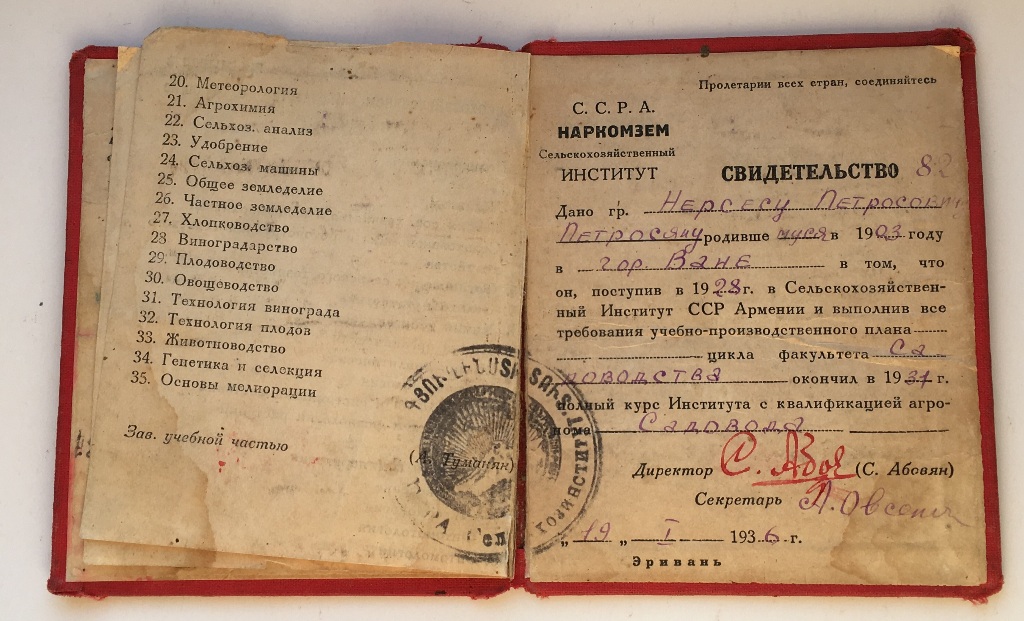 20. Метеорология
21. Агрохимия
22. Сельхоз. анализ
23. Удобрение
24. Сельхоз. машины
25. Общее земледелие
26. Частное земледелие
27. Хлопководство
28 Виноградарство
29. Плодоводство
30. Овощеводство
31. Технология винограда
32. Технология плодов
33. Животноводство
34. Генетика и селекция
35. Основы мелиорации
Зав. учебной частью
(А. Туманян)
Пролетарии всех стран, соединяйтесь
С. С. Р. А.
НАРКОМЗЕМ
Сельскохозяйственный
ИНСТИТУТ
СВИДЕТЕЛЬСТВО 82
Дано гр. Нерсесу Петросовичу
Петросяну родивше муся в 1903 году
в гор. Ване в том, что
он, поступив в 1928 г. в Сельскохозяйствен-
ный Институт ССР Армении и выполнив все
требования учебно-производственного плана
цикла факультета Са
доводства окончил в 1931 г.
полный курс Института с квалификацией агро-
нома Садовода
Директор С. Абов (С. Абовян)
Секретарь
„19„ I 1936 г.
Эривань